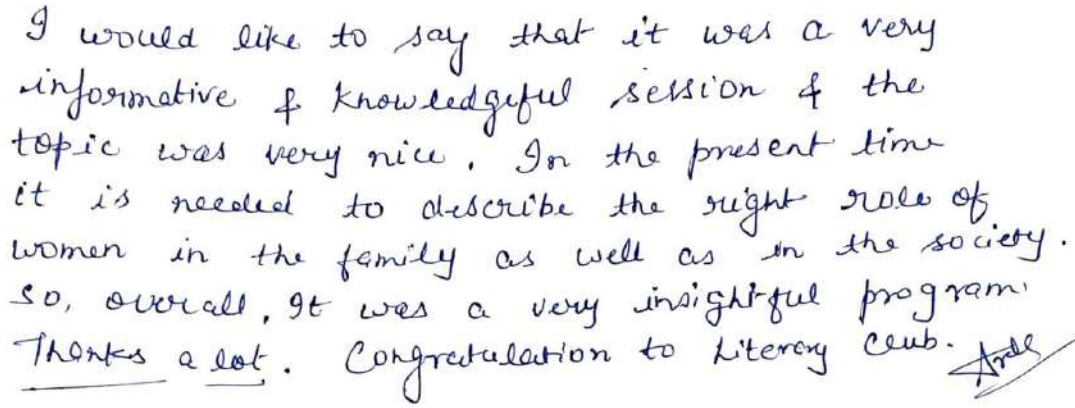 I would like to say that it was a very
informative & knowledgeful session & the
topic was very nice. In the present time
it is needed to describe the right role of
women in the family as well as in the society.
So, overall, It was a very insightful program.
Thanks a lot. Congratulation to Literary Club.